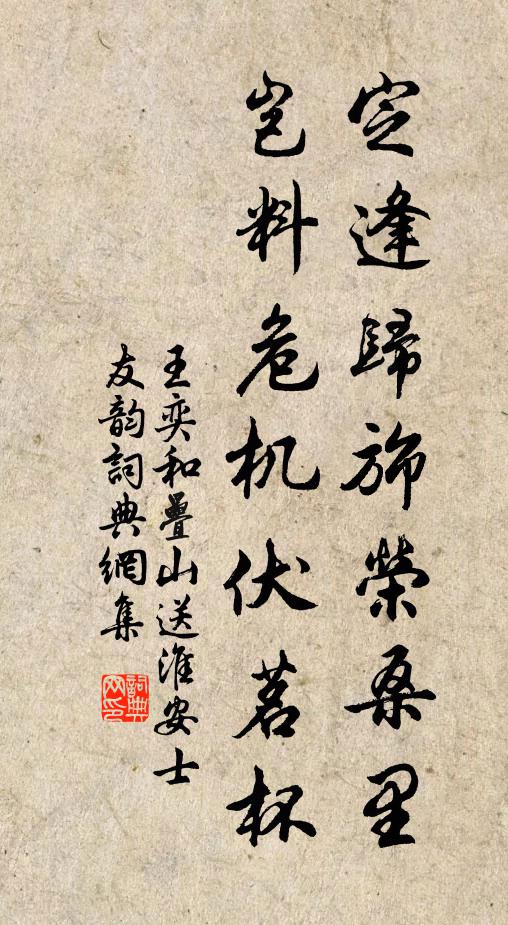 定逢歸旆榮桑里
岂料危机伏茗杯
王奕和疊山送淮安士
友韵詞典網集
詞典
网印